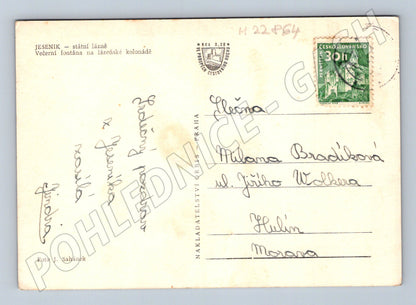 JESENÍK – státní lázně
Večerní fontána na lázeňské kolonádě
M 22864
Kčs 0,50
ČESKOSLOVENSKO
30h
Srdečný pozdrav
z Jeseníka
Jindra
Foto J. Sahánek
NAKLADATELSTVÍ ORBIS - PRAHA
Slečna
Milana Bradíková
ul. Jiřího Wolkera
Hulín
Morava
POHLEDNICE-CECH